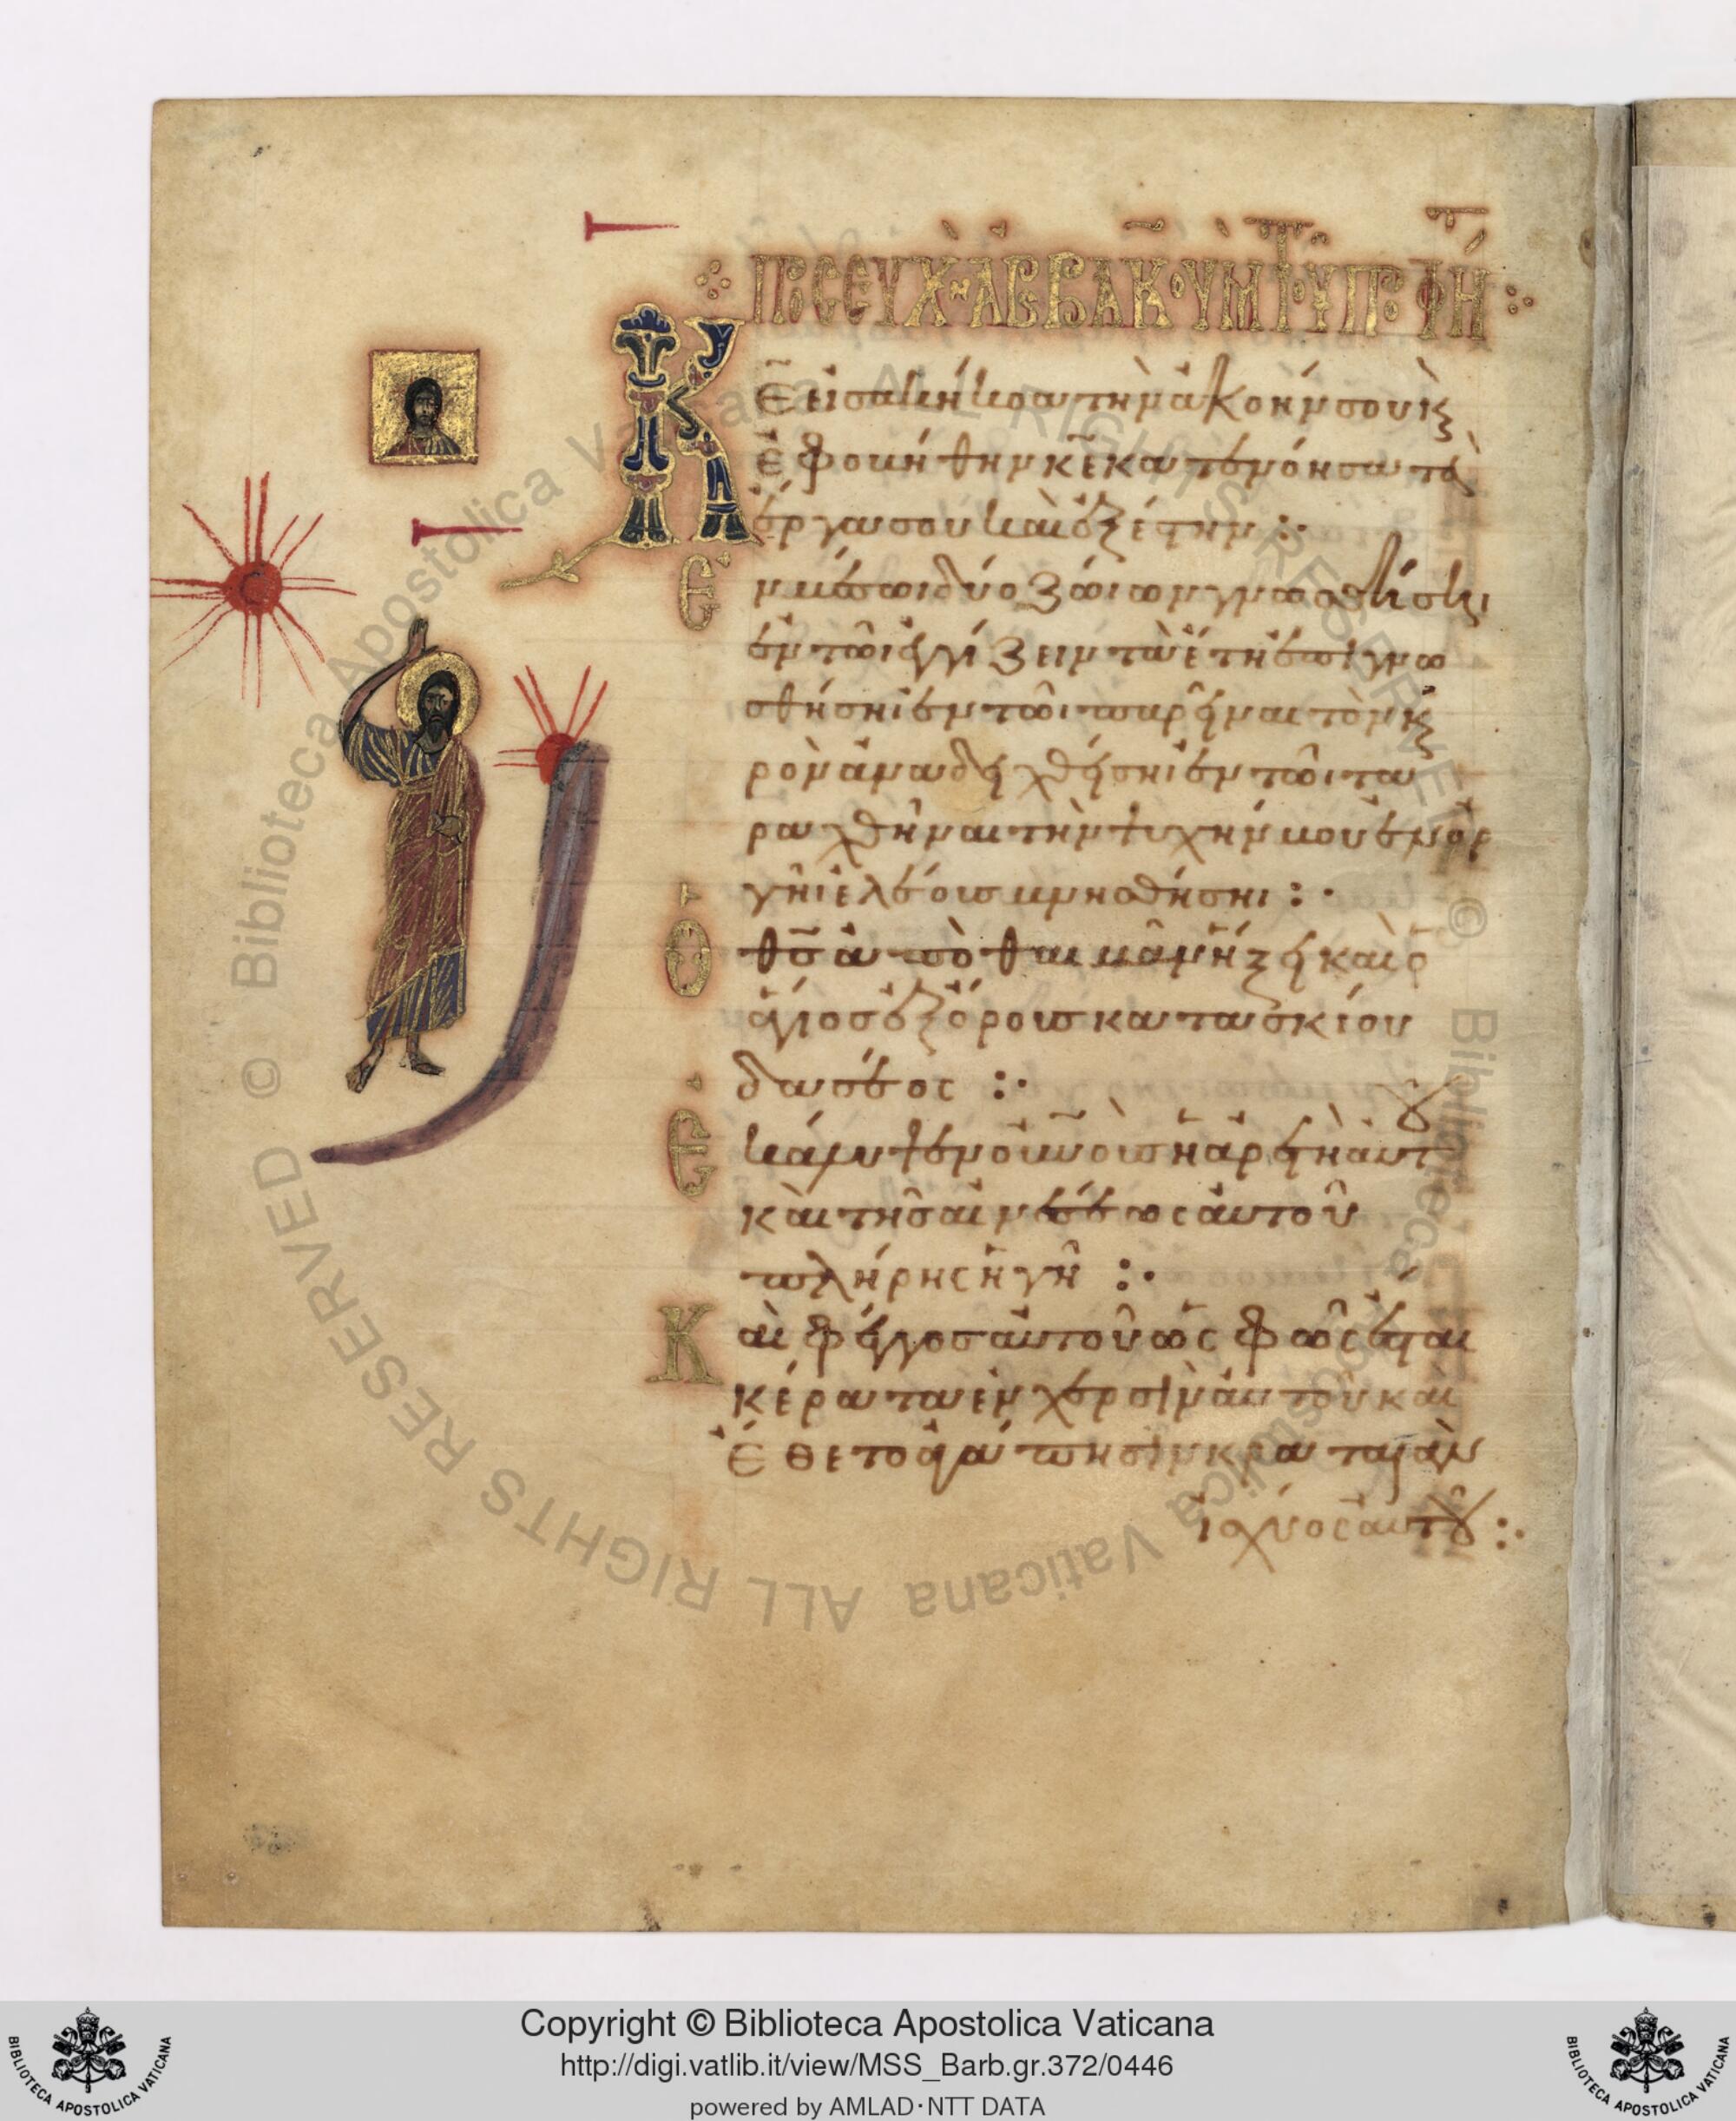 ΠΡΟΣΕΥΧῊ ἈΒΒΑΚΟῪΜ ΤΟΥ ΠΡΟΦΉΤ
Κ͞Ε εἰσακήκοα τὴν ἀκοήν σου κ
ἐφοβήθην κ͞ε κατενόησα τὰ
ἔργα σου καὶ ἐξέστην :·
Ἐν μέσωι δύο ζώιων γνωσθήσηι
ἐν τῶι ἐγγίζειν τὰ ἔτη ἐπιγνω
σθήσηι ἐν τῶι παρεῖναι τὸν και
ρὸν ἀναδειχθήσηι ἐν τῶι τα
ραχθῆναι τὴν ψυχήν μου ἐν ὀρ
γῆι ἐλέους μνησθήσηι :·
Ὁ θ͞σ ἀπὸ θαιμὰν ἥξει καὶ ὁ
ἅγιος ἐξ ὄρους κατασκίου
δασέος :·
Ἐκάλυψεν οὐνοὺς ἡ ἀρετὴ αὐτοῦ
καὶ τῆς αἰνέσεως αὐτοῦ
πλήρης ἡ γῆ :·
Καὶ φέγγος αὐτοῦ ὡς φῶς ἔσται
κέρατα ἐν χερσὶν αὐτοῦ καὶ
ἔθετο ἀγάπησιν κραταιὰν
ἰσχύος αὐτοῦ :·
Copyright © Biblioteca Apostolica Vaticana
http://digi.vatlib.it/view/MSS_Barb.gr.372/0446
powered by AMLAD·NTT DATA
BIBLIOTECA APOSTOLICA VATICANA
BIBLIOTECA APOSTOLICA VATICANA
© Biblioteca Apostolica Vaticana ALL RIGHTS RESERVED © Biblioteca Apostolica Vaticana ALL RIGHTS RESERVED